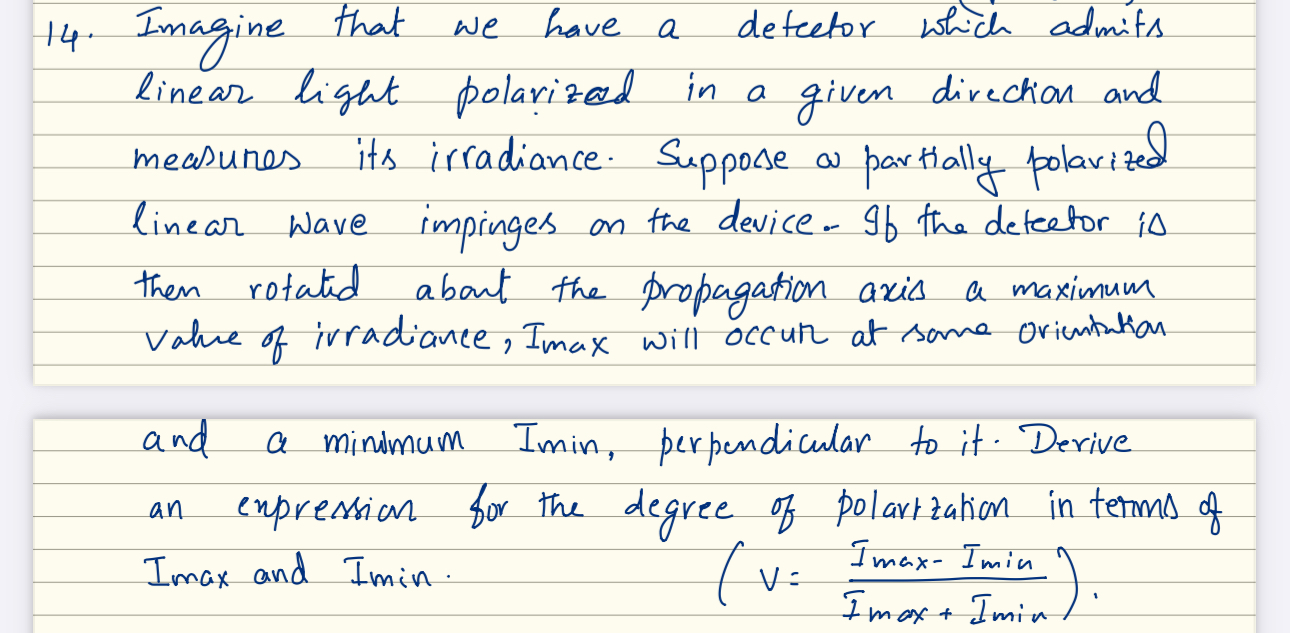 14. Imagine that we have a detector which admits
linear light polarized in a given direction and
measures its irradiance. Suppose a partially polarized
linear wave impinges on the device. If the detector is
then rotated about the propagation axis a maximum
value of irradiance, Imax will occur at some orientation
and a minimum Imin, perpendicular to it. Derive
an expression for the degree of polarization in terms of
Imax and Imin. ( V = Imax - Imin / Imax + Imin ).